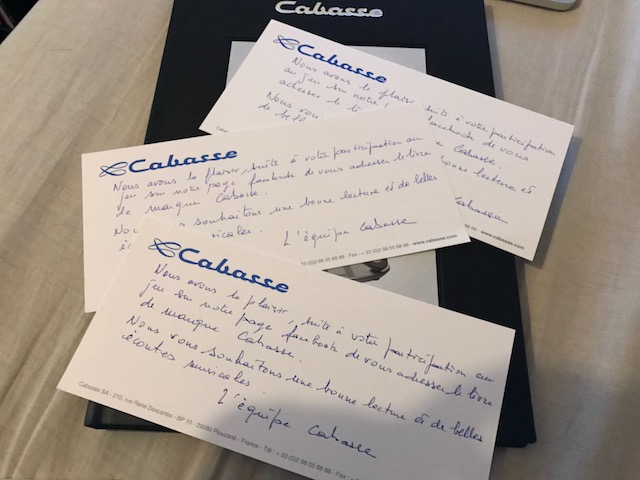 Cabasse
Cabasse
Nous avons le plaisir, suite à votre participation
au jeu sur notre facebook de vous
adresser le Cabasse.
Nous bonne lecture et
de
Cabasse
www.cabasse.com
Cabasse
Nous avons le plaisir, suite à votre participation au
jeu sur notre page facebook de vous adresser le livre
de marque Cabasse.
souhaitons une bonne lecture et de belles
musicales.
L'équipe Cabasse
Fax : www.cabasse.com
Cabasse
Nous avons le plaisir, suite à votre participation au
jeu sur notre page facebook de vous adresser le livre
de marque Cabasse.
Nous vous souhaitons une bonne lecture et de belles
écoutes musicales
L'équipe Cabasse
Cabasse SA - 210, rue René Descartes - BP 10 - 29280 Plouzané - France - Tél : + 33 (0)2 98 05 88 88 - Fax